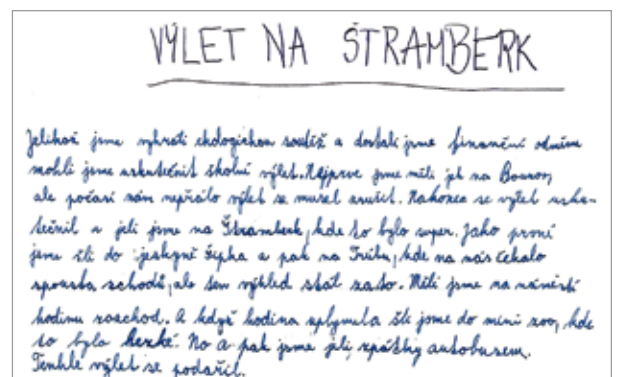 VÝLET NA ŠTRAMBERK
Jelikož jsme vyhráli ekologickou soutěž a dostali jsme finanční odměnu
mohli jsme uskutečnit školní výlet. Nejprve jsme měli jet na Bouzov,
ale počasí nám nepřálo výlet se musel zrušit. Nakonec se výlet usku-
tečnil a jeli jsme na Štramberk, kde to bylo super. Jako první
jsme šli do jeskyně Šipka a pak na Trúbu, kde na nás čekalo
spousta schodů, ale ten výhled stál za to. Měli jsme na náměstí
hodinu rozchod. A když hodina uplynula šli jsme do mini zoo, kde
to bylo hezké. No a pak jsme jeli zpátky autobusem.
Tenhle výlet se podařil.